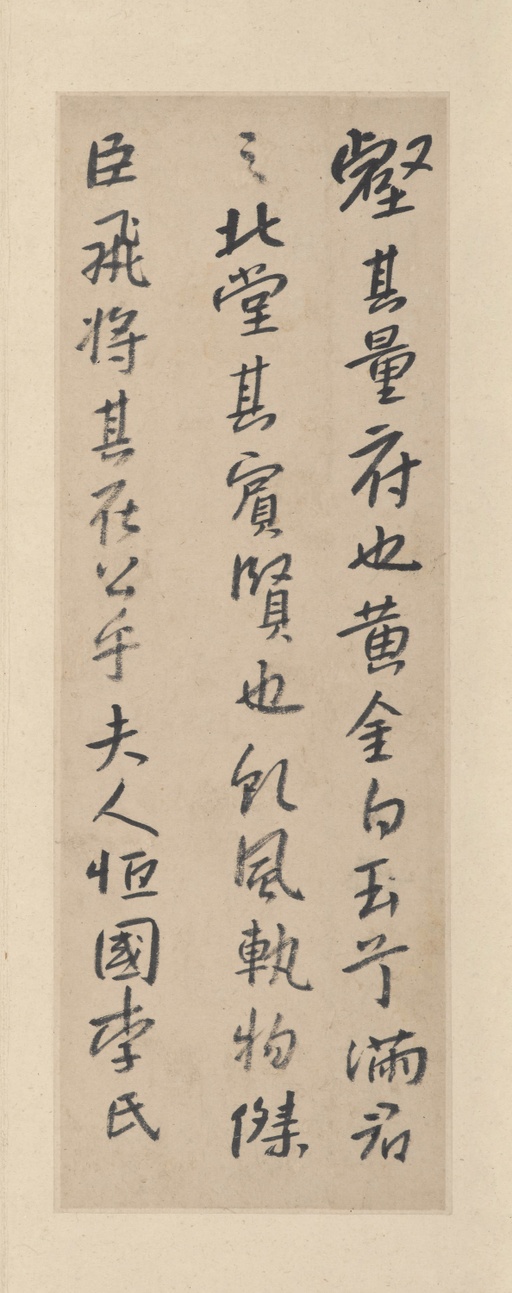 壑其量府也黄金白玉兮滿君
之北堂其賓賢也飢風執物傑
臣飛將其在公乎夫人恒國李氏